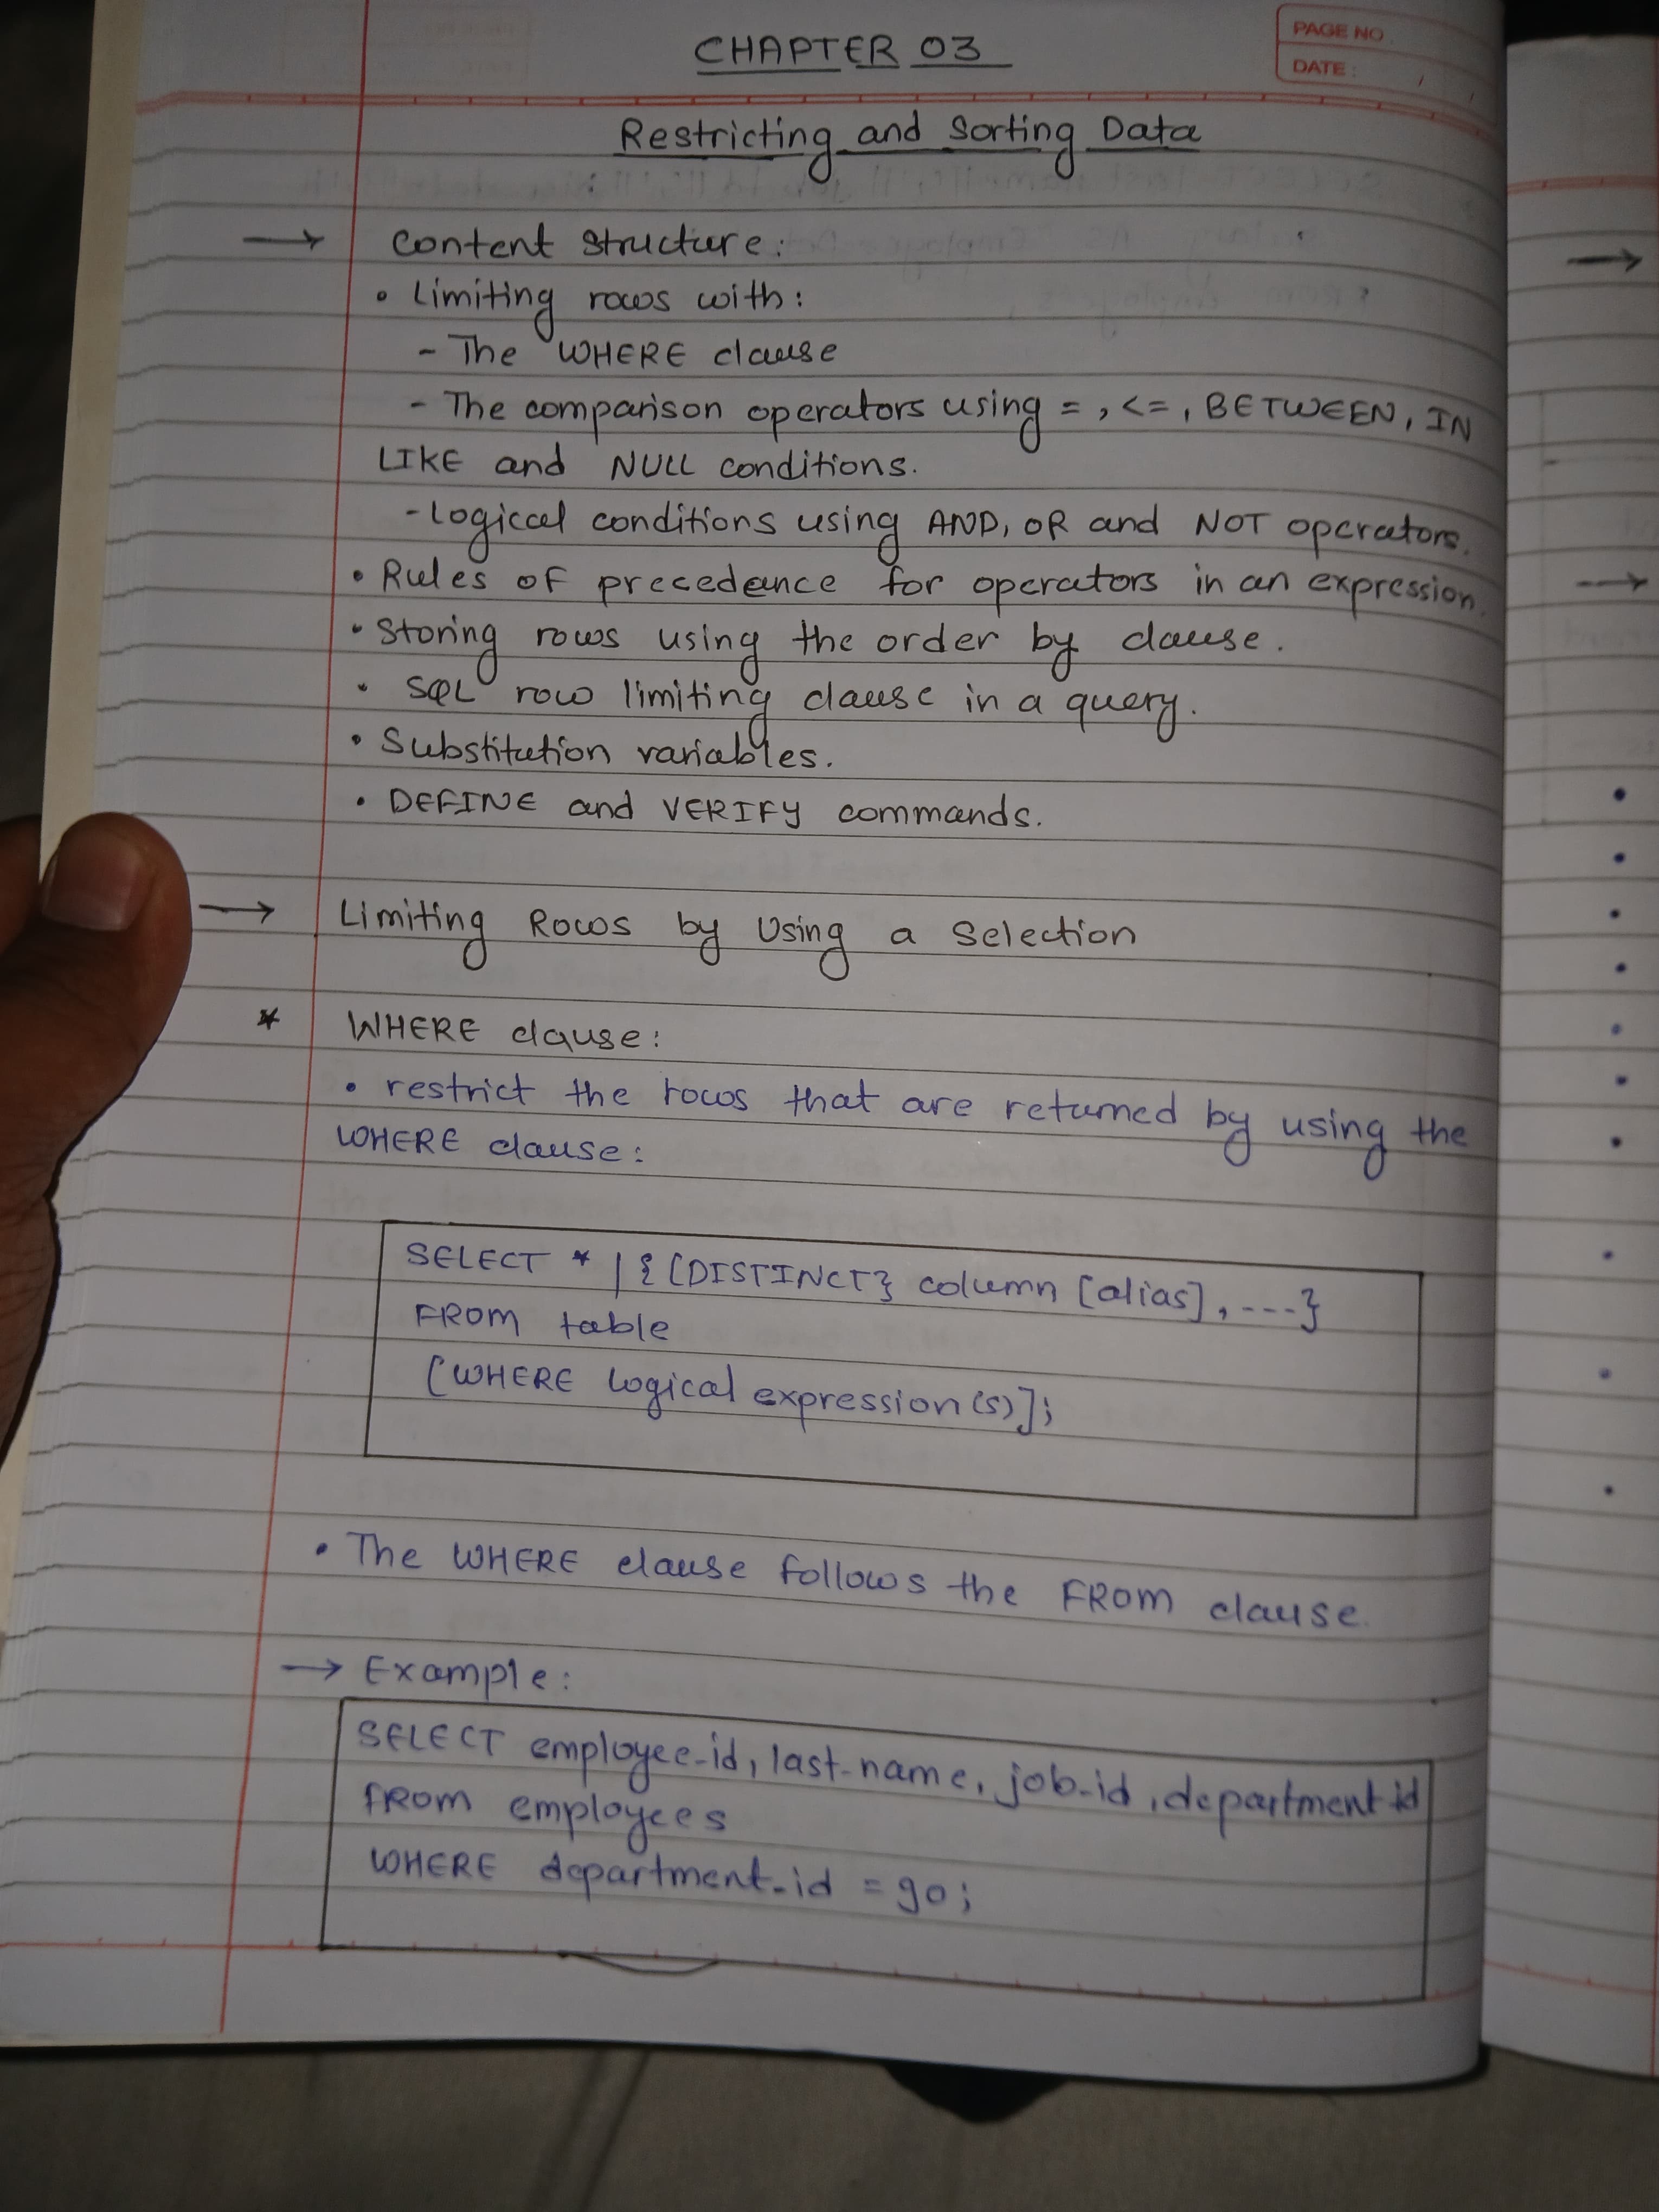 CHAPTER 03
PAGE NO.
DATE: /
Restricting and Sorting Data
→ Content Structure:
• Limiting rows with:
- The WHERE clause
- The comparison operators using = , <= , BETWEEN, IN
LIKE and NULL conditions.
- Logical conditions using AND, OR and NOT operators.
• Rules of precedence for operators in an expression.
• Storing rows using the order by clause.
• SQL row limiting clause in a query.
• Substitution variables.
• DEFINE and VERIFY commands.
→ Limiting Rows by Using a Selection
* WHERE clause:
• restrict the rows that are returned by using the
WHERE clause:
SELECT * | { [DISTINCT} column [alias], ----}
FROM table
[WHERE logical expression(s)];
• The WHERE clause follows the FROM clause.
→ Example:
SELECT employee_id, last_name, job_id, department_id
FROM employees
WHERE department_id = 90;